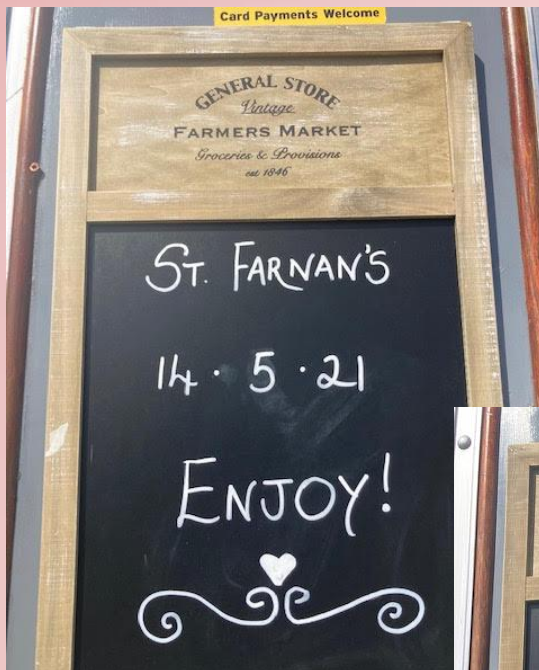 Card Payments Welcome
GENERAL STORE
Vintage
FARMERS MARKET
Groceries & Provisions
est 1846
ST. FARNAN'S
14 · 5 · 21
ENJOY!